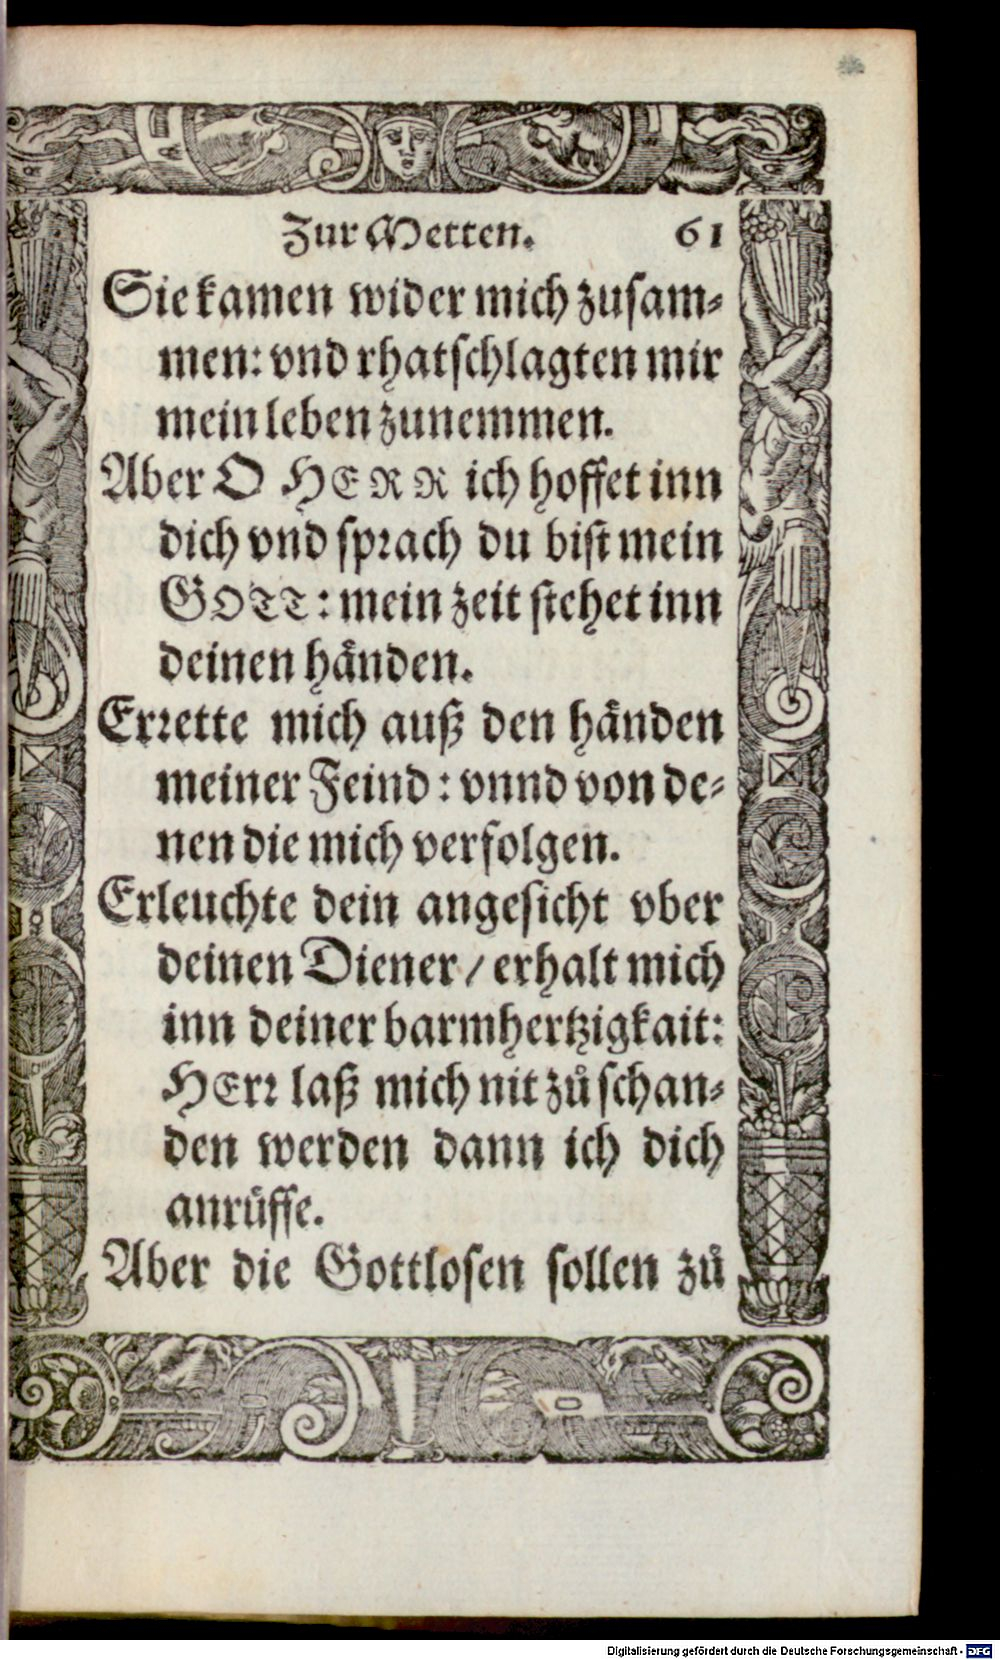 Zur Metten. 61
Sie kamen wider mich zusam⸗
men: vnd rhatschlagten mir
mein leben zunemmen.
Aber O HERR ich hoffet inn
dich vnd sprach du bist mein
GOTT: mein zeit stehet inn
deinen hånden.
Errette mich auß den hånden
meiner Feind: vnnd von de⸗
nen die mich verfolgen.
Erleuchte dein angesicht vber
deinen Diener / erhalt mich
inn deiner barmhertzigkait:
HErr laß mich nit zů schan⸗
den werden dann ich dich
anrůffe.
Aber die Gottlosen sollen zů
Digitalisierung gefördert durch die Deutsche Forschungsgemeinschaft - DFG